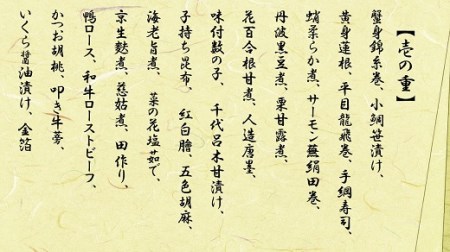 【壱の重】
蟹身錦糸巻、小鯛笹漬け、
黄身蓮根 平目龍飛巻、手綱寿司、
蛸柔らか煮、サーモン蕪絹田巻、
丹波黒豆煮、栗甘露煮、
花百合根甘煮、人造唐墨、
味付数の子、千代呂木甘漬け、
子持ち昆布、紅白膾、五色胡麻、
海老旨煮、菜の花塩茹で、
京生麩煮、慈姑煮、田作り、
鴨ロース、和牛ローストビーフ、
かつお胡桃、叩き牛蒡、
いくら醤油漬け、金箔